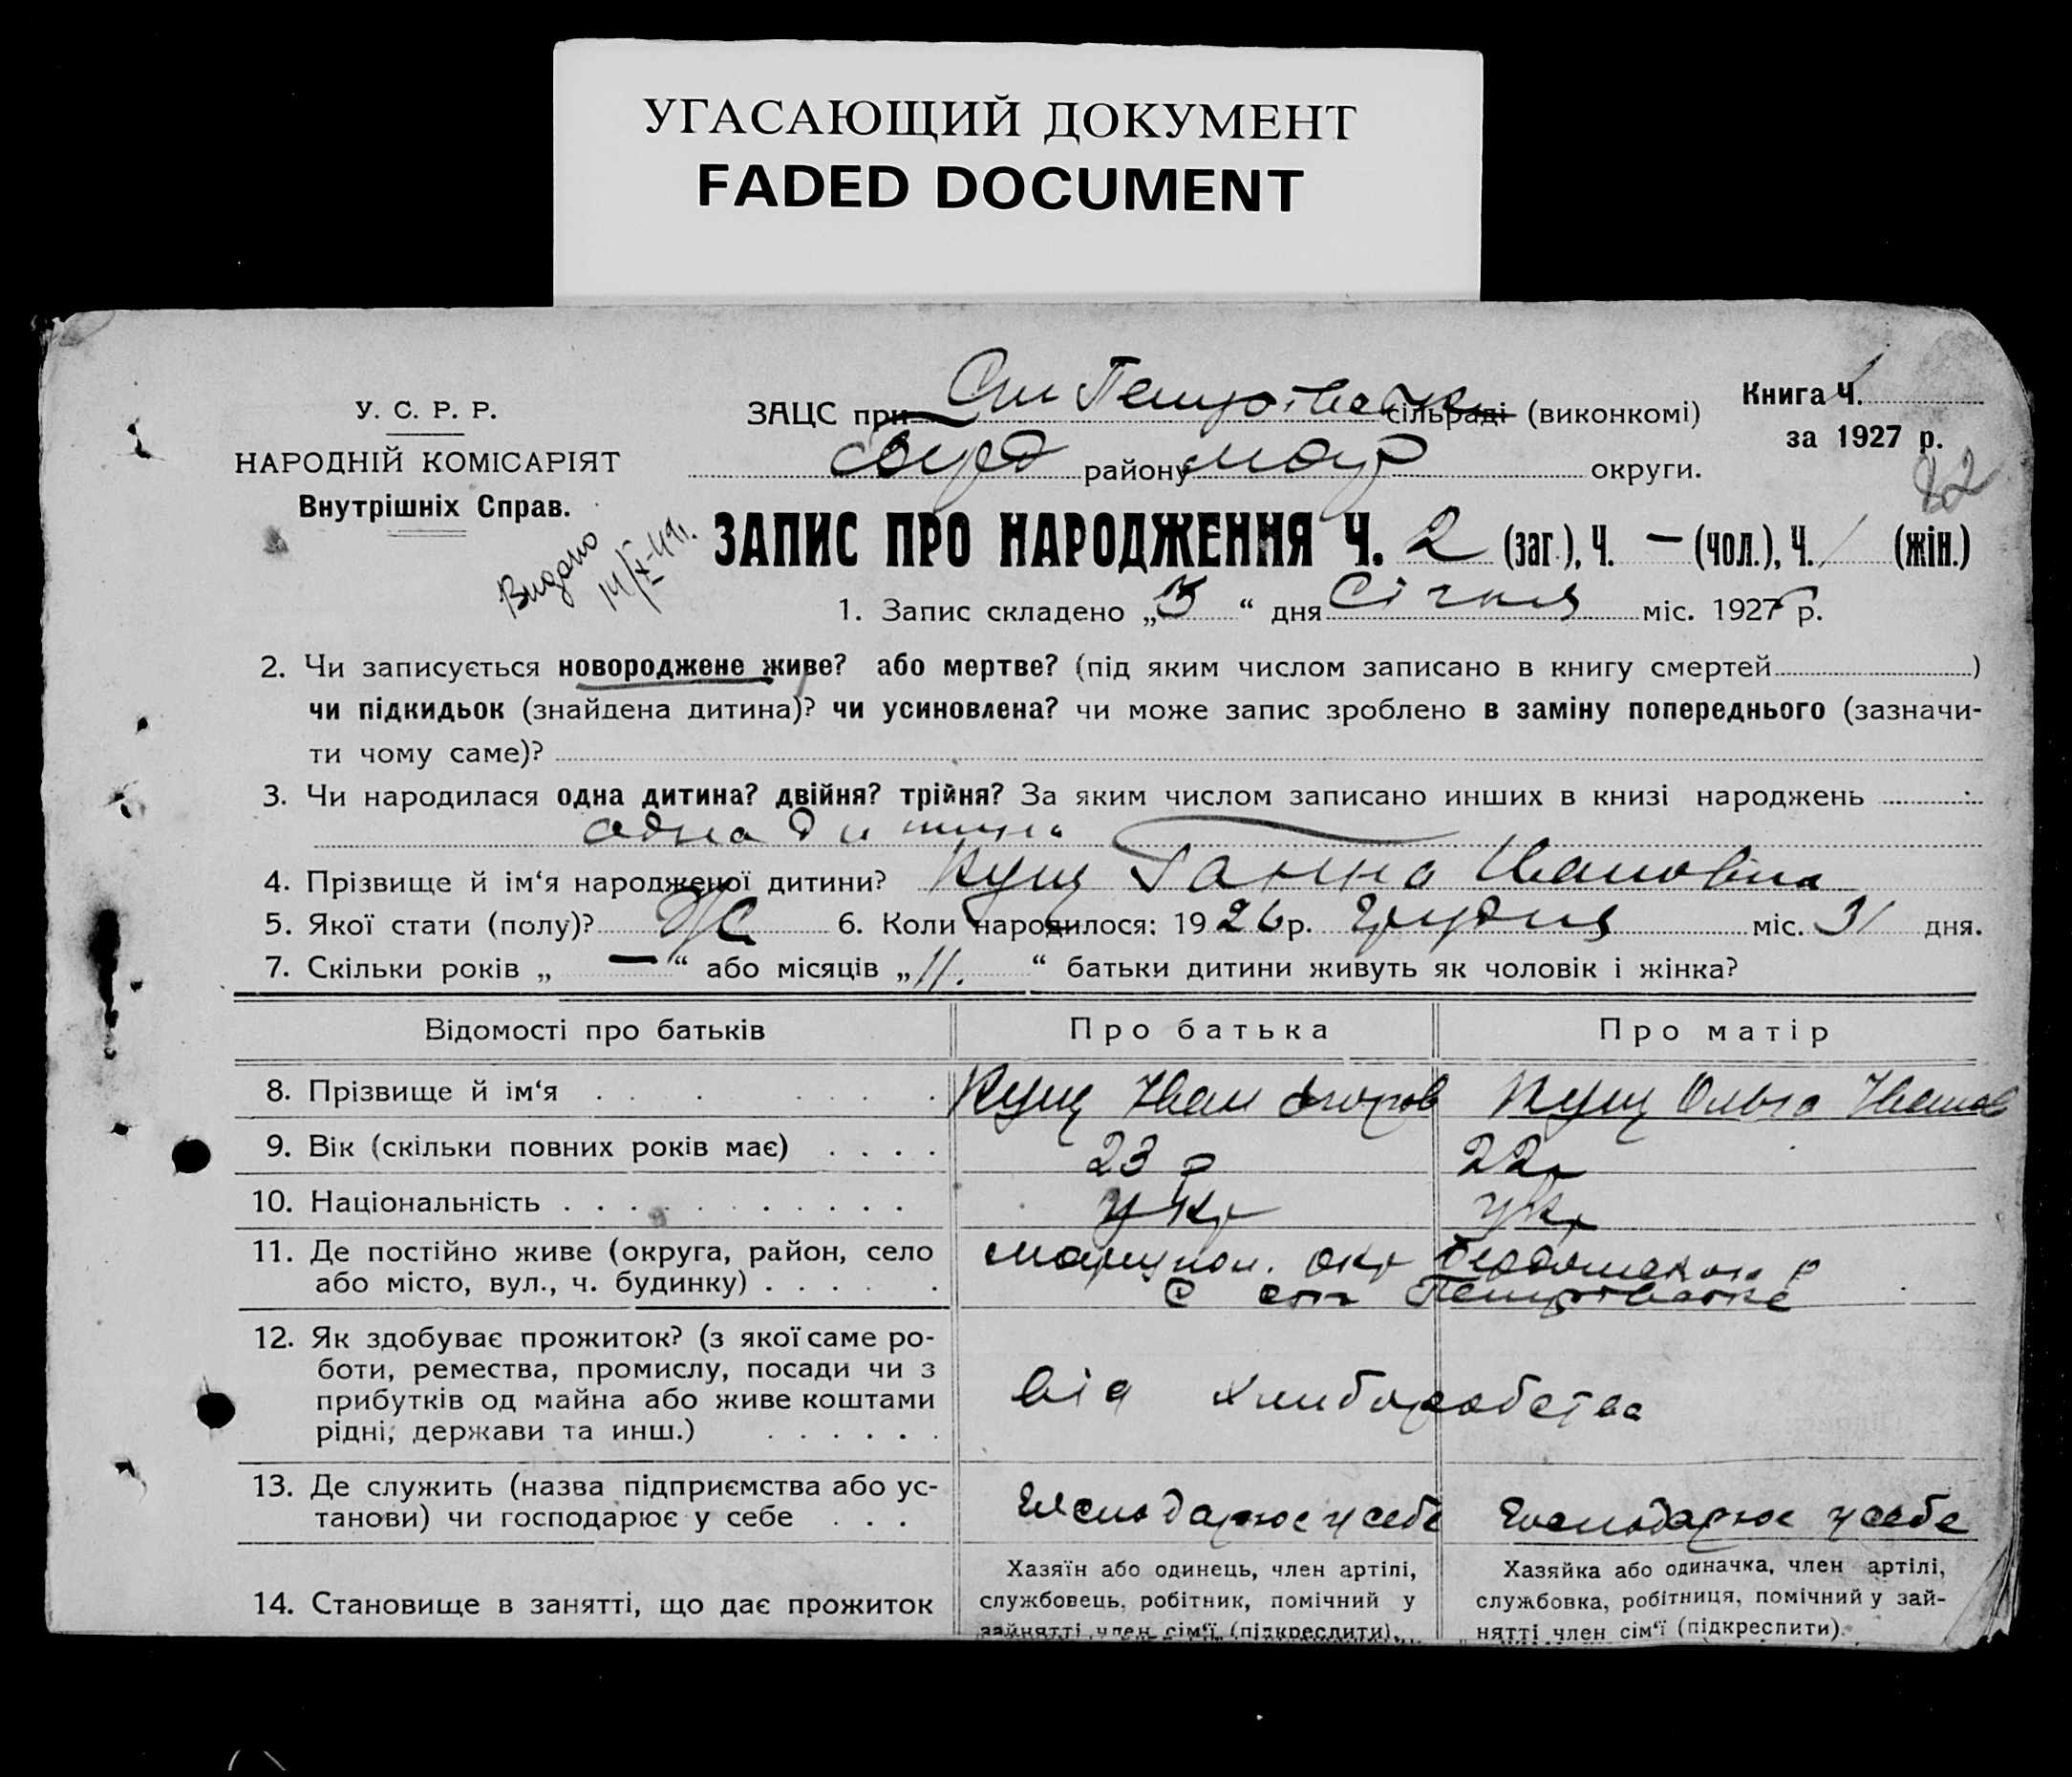 УГАСАЮЩИЙ ДОКУМЕНТ
FADED DOCUMENT
У. С. Р. Р.
НАРОДНІЙ КОМІСАРІЯТ
Внутрішніх Справ.
Видано
ЗАЦС при сільраді (виконкомі)
району округи.
Книга Ч. 1
за 1927 р.
ЗАПИС ПРО НАРОДЖЕННЯ Ч. 2 (заг.), Ч. — (чол.), Ч. 1 (жін.)
1. Запис складено „ “ дня Січня міс. 1927 р.
2. Чи записується новороджене живе? або мертве? (під яким числом записано в книгу смертей )
чи підкидьок (знайдена дитина)? чи усиновлена? чи може запис зроблено в заміну попереднього (зазначи-
ти чому саме)?
3. Чи народилася одна дитина? двійня? трійня? За яким числом записано инших в книзі народжень
одна дитина
4. Прізвище й ім‘я народженої дитини? Кущ Ганна Ивановна
5. Якої стати (полу)? Ж 6. Коли народилося: 1926 р. грудня міс. 31 дня.
7. Скільки років „ — “ або місяців „ 11. “ батьки дитини живуть як чоловік і жінка?
Відомості про батьків Про батька Про матір
8. Прізвище й ім‘я . . . . . . . Кущ Иван Кущ Ольга Иванов
9. Вік (скільки повних років має) . . . . 23 р 22 р
10. Національність . . . . . . . . . . . укр укр
11. Де постійно живе (округа, район, село
або місто, вул., ч. будинку) . . . . . .
Мариупол. окр
12. Як здобуває прожиток? (з якої саме ро-
боти, ремества, промислу, посади чи з
прибутків од майна або живе коштами
рідні, держави та инш.) . . . . . .
від хлиборобства
13. Де служить (назва підприємства або ус-
танови) чи господарює у себе . . .
Господарює у себе Господарює у себе
14. Становище в занятті, що дає прожиток
Хазяїн або одинець, член артілі,
службовець, робітник, помічний у
зайнятті член сім‘ї (підкреслити).
Хазяйка або одиначка, член артілі,
службовка, робітниця, помічний у зай-
нятті член сім‘ї (підкреслити).